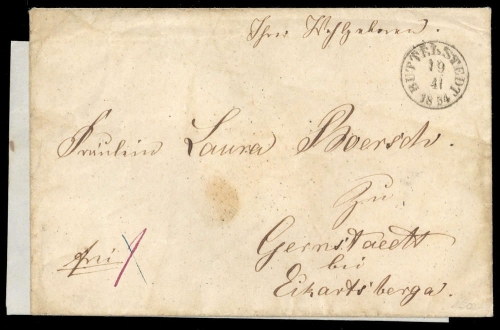 Ihro Wohlgeboren.
BUTTELSTEDT
19
11
1854
Fräulein Laura Boersch.
zu
Gernstaedt
bei
Eckartsberga.
frei